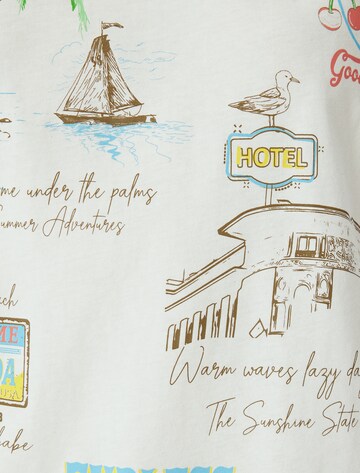 Goo
HOTEL
me under the palms
Summer Adventures
ch
ME
DA
Warm waves lazy da
The Sunshine State
abe